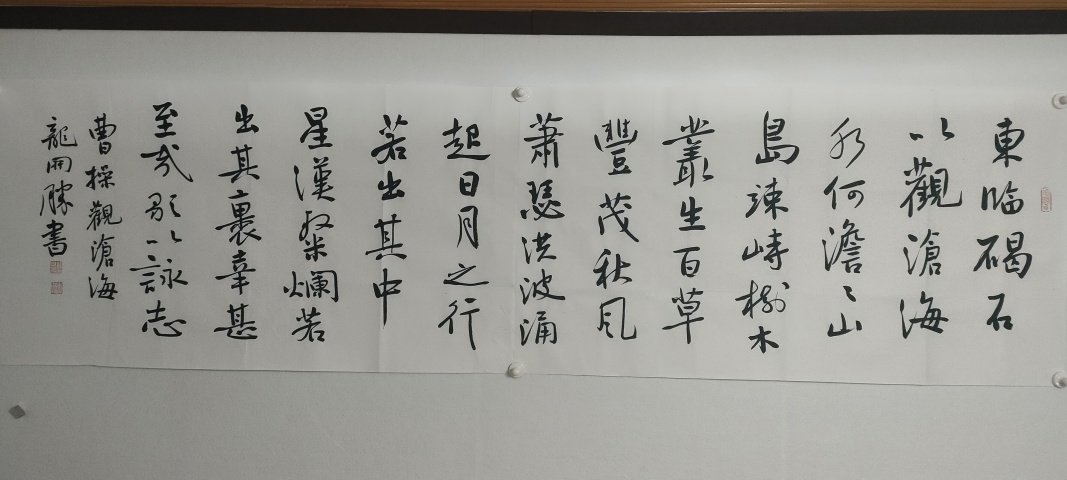 東临碣石
以觀滄海
水何澹〻山
島竦峙樹木
叢生百草
豐茂秋風
蕭瑟洪波涌
起日月之行
若出其中
星漢粲爛若
出其裏幸甚
至哉歌以詠志
曹操觀滄海
龍開勝書